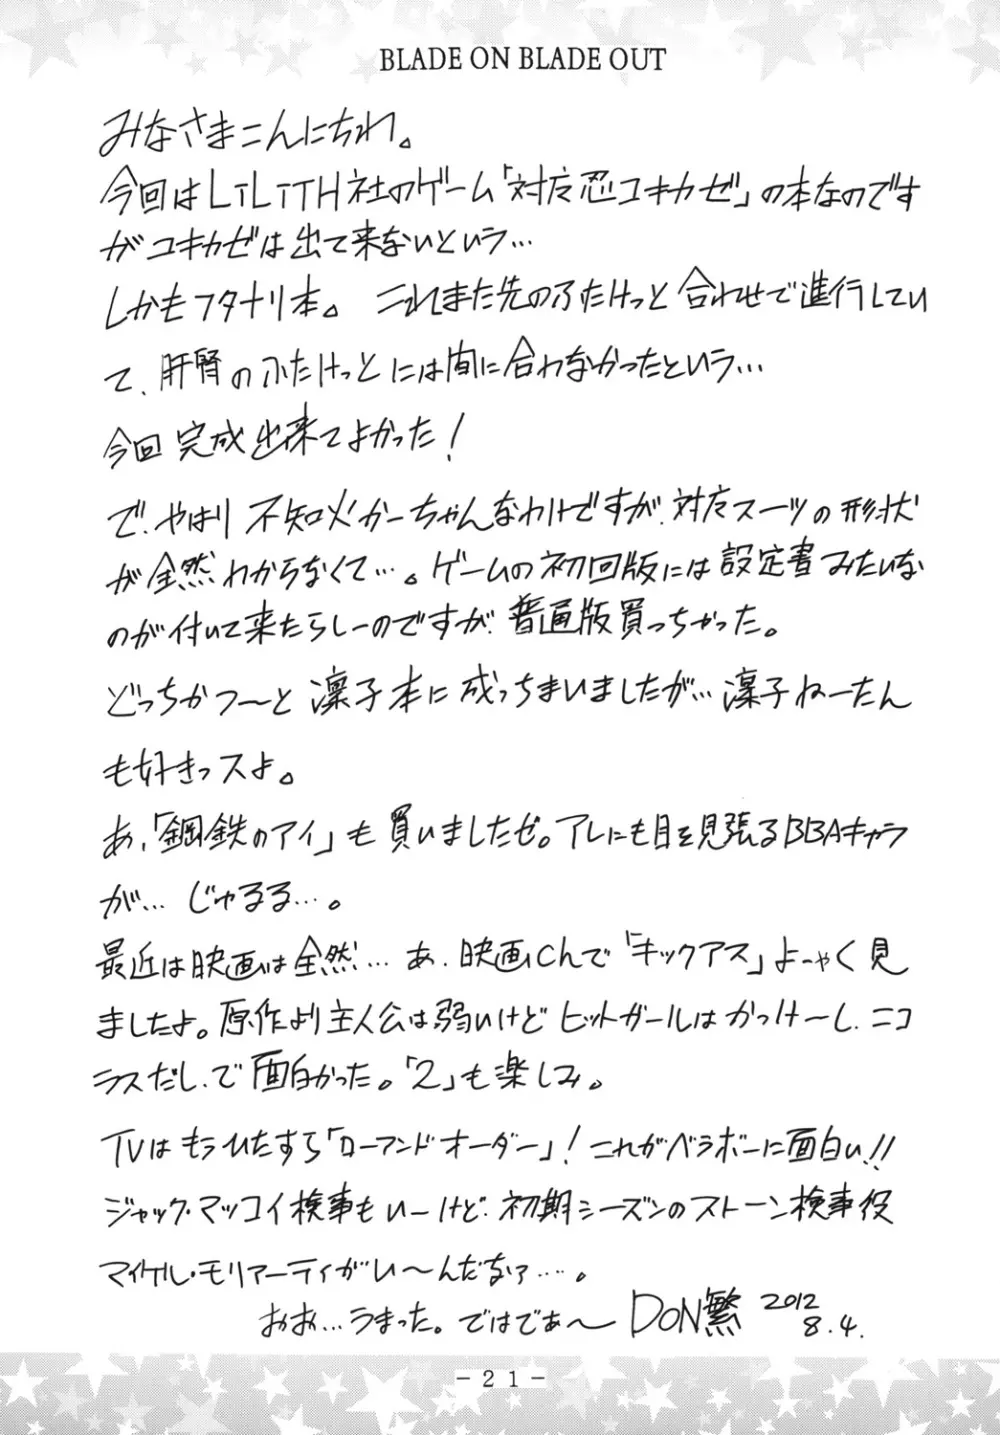 BLADE ON BLADE OUT
みなさまこんにちわ。
今回はLILITH社のゲーム「対魔忍ユキカゼ」の本なのです
がユキカゼは出て来ないという…
しかもフタナリ本。これまた先のふたけっと合わせで進行してい
て、肝腎のふたけっとには間に合わなかったという…
今回完成出来てよかった！
で、やはり不知火かーちゃんなわけですが、対魔スーツの形状
が全然わからなくて…。ゲームの初回版には設定書みたいな
のが付いて来たらしーのですが、普通版買っちゃった。
どっちかつ〜と凜子本に成っちまいましたが…凜子ねーたん
も好きっスよ。
あ、「鋼鉄のアイ」も買いましたぜ。アレにも目を見張るBBAキャラ
が… じゅるる…。
最近は映画は全然… あ、映画Chで「キックアス」よーやく見
ましたよ。原作より主人公は弱いけどヒットガールはかっけ〜し、ニコ
ラスだし、で面白かった。「2」も楽しみ。
TVはもうひたすら「ローアンドオーダー」！これがベラボーに面白い!!
ジャック・マッコイ検事もいーけど、初期シーズンのストーン検事役
マイケル・モリアーティがい〜んだなァ…。
おお…うまった。ではでぁ〜 DON繁 2012
8.4.
-21-